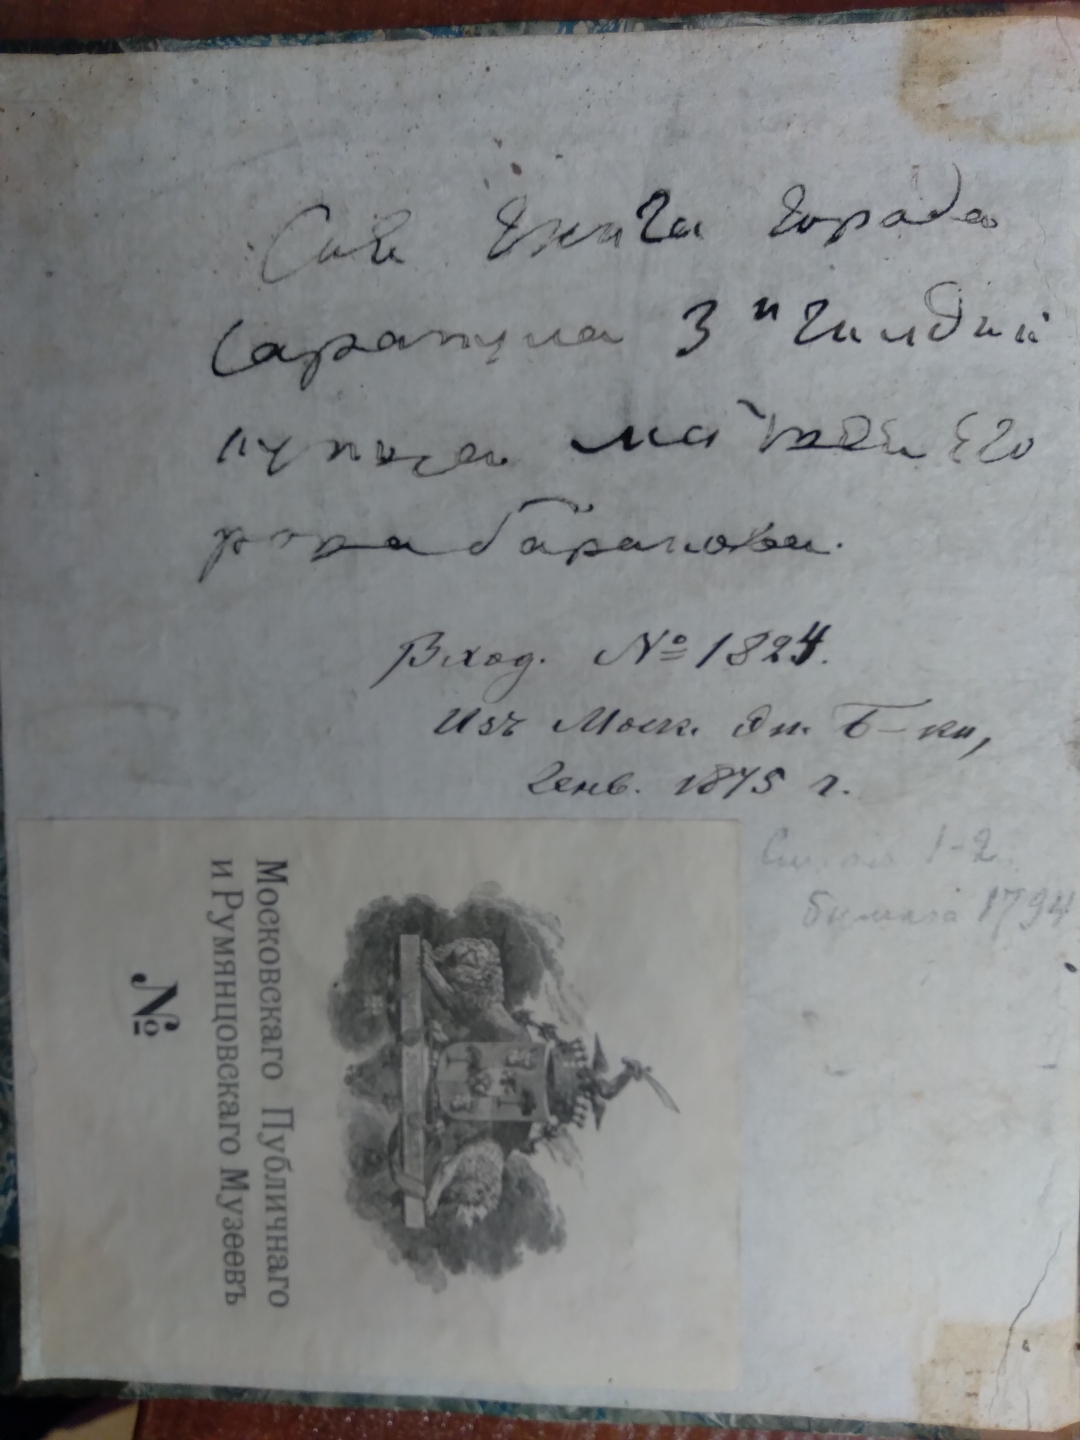 Сия Книга города
Сарапула 3й гилдии
купъца матвея Его
рова баранова.
Вход. № 1824.
Изъ Моск. Б-ки,
Генв. 1875 г.
1-2
бумага 1794
Московскаго Публичнаго
и Румянцовскаго Музеевъ
№